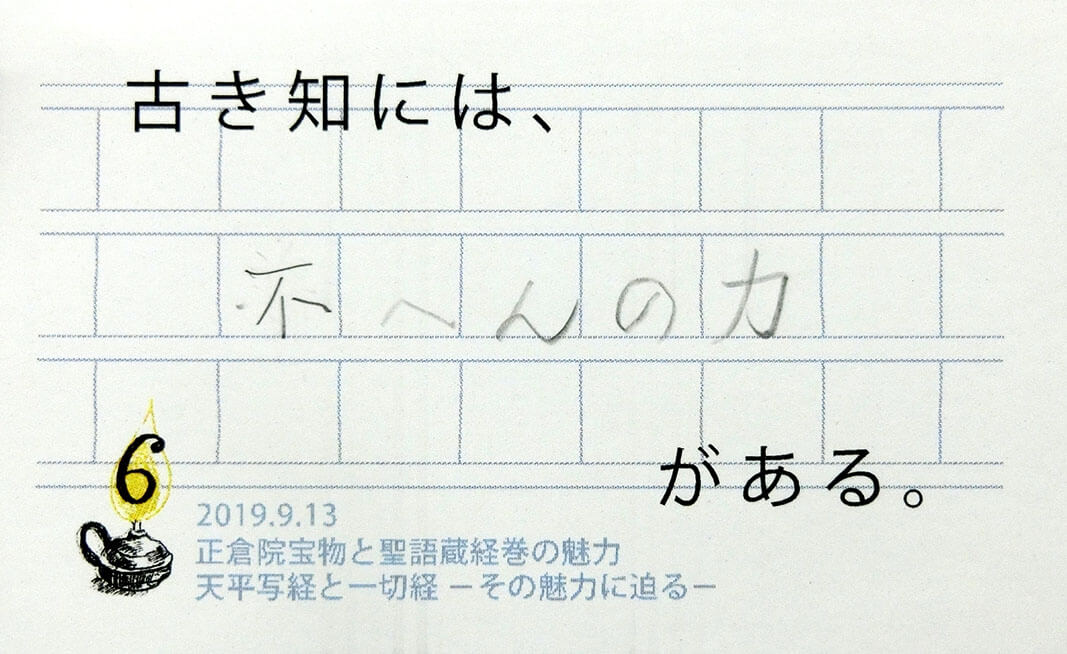 古き知には、
不へんの力
がある。
6
2019.9.13
正倉院宝物と聖語蔵経巻の魅力
天平写経と一切経 －その魅力に迫る－